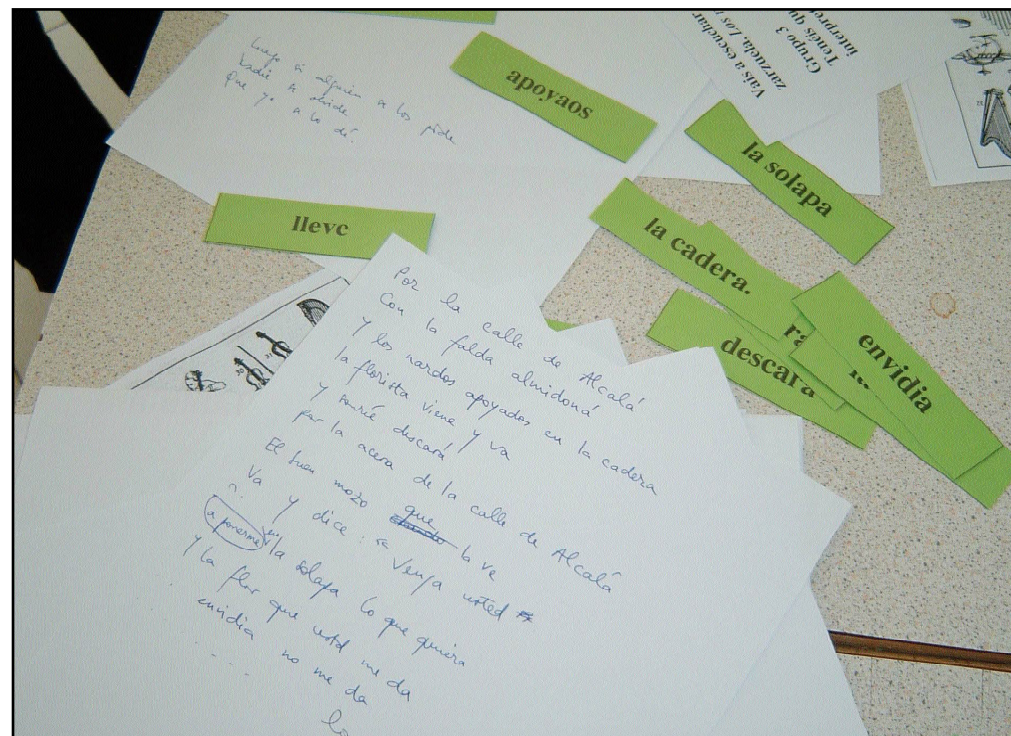 Luego si alguien a los pide
nadie a olvide
Que yo a lo dí.
apoyaos
Vais a escuchar
zarzuela, Los
Grupo 3
Tenéis qu
interpre
la solapa
llevc
la cadera.
ra
descara
envidia
Por la calle de Alcalá
Con la falda almidoná
y los nardos apoyados en la cadera
la florista viene y va
y sonríe descará
por la acera de la calle de Alcalá
El buen mozo que la ve
Va y dice: "Venga usted
a ponerme en la solapa lo que quiera
y la flor que usted me da
envidia no me da
lo